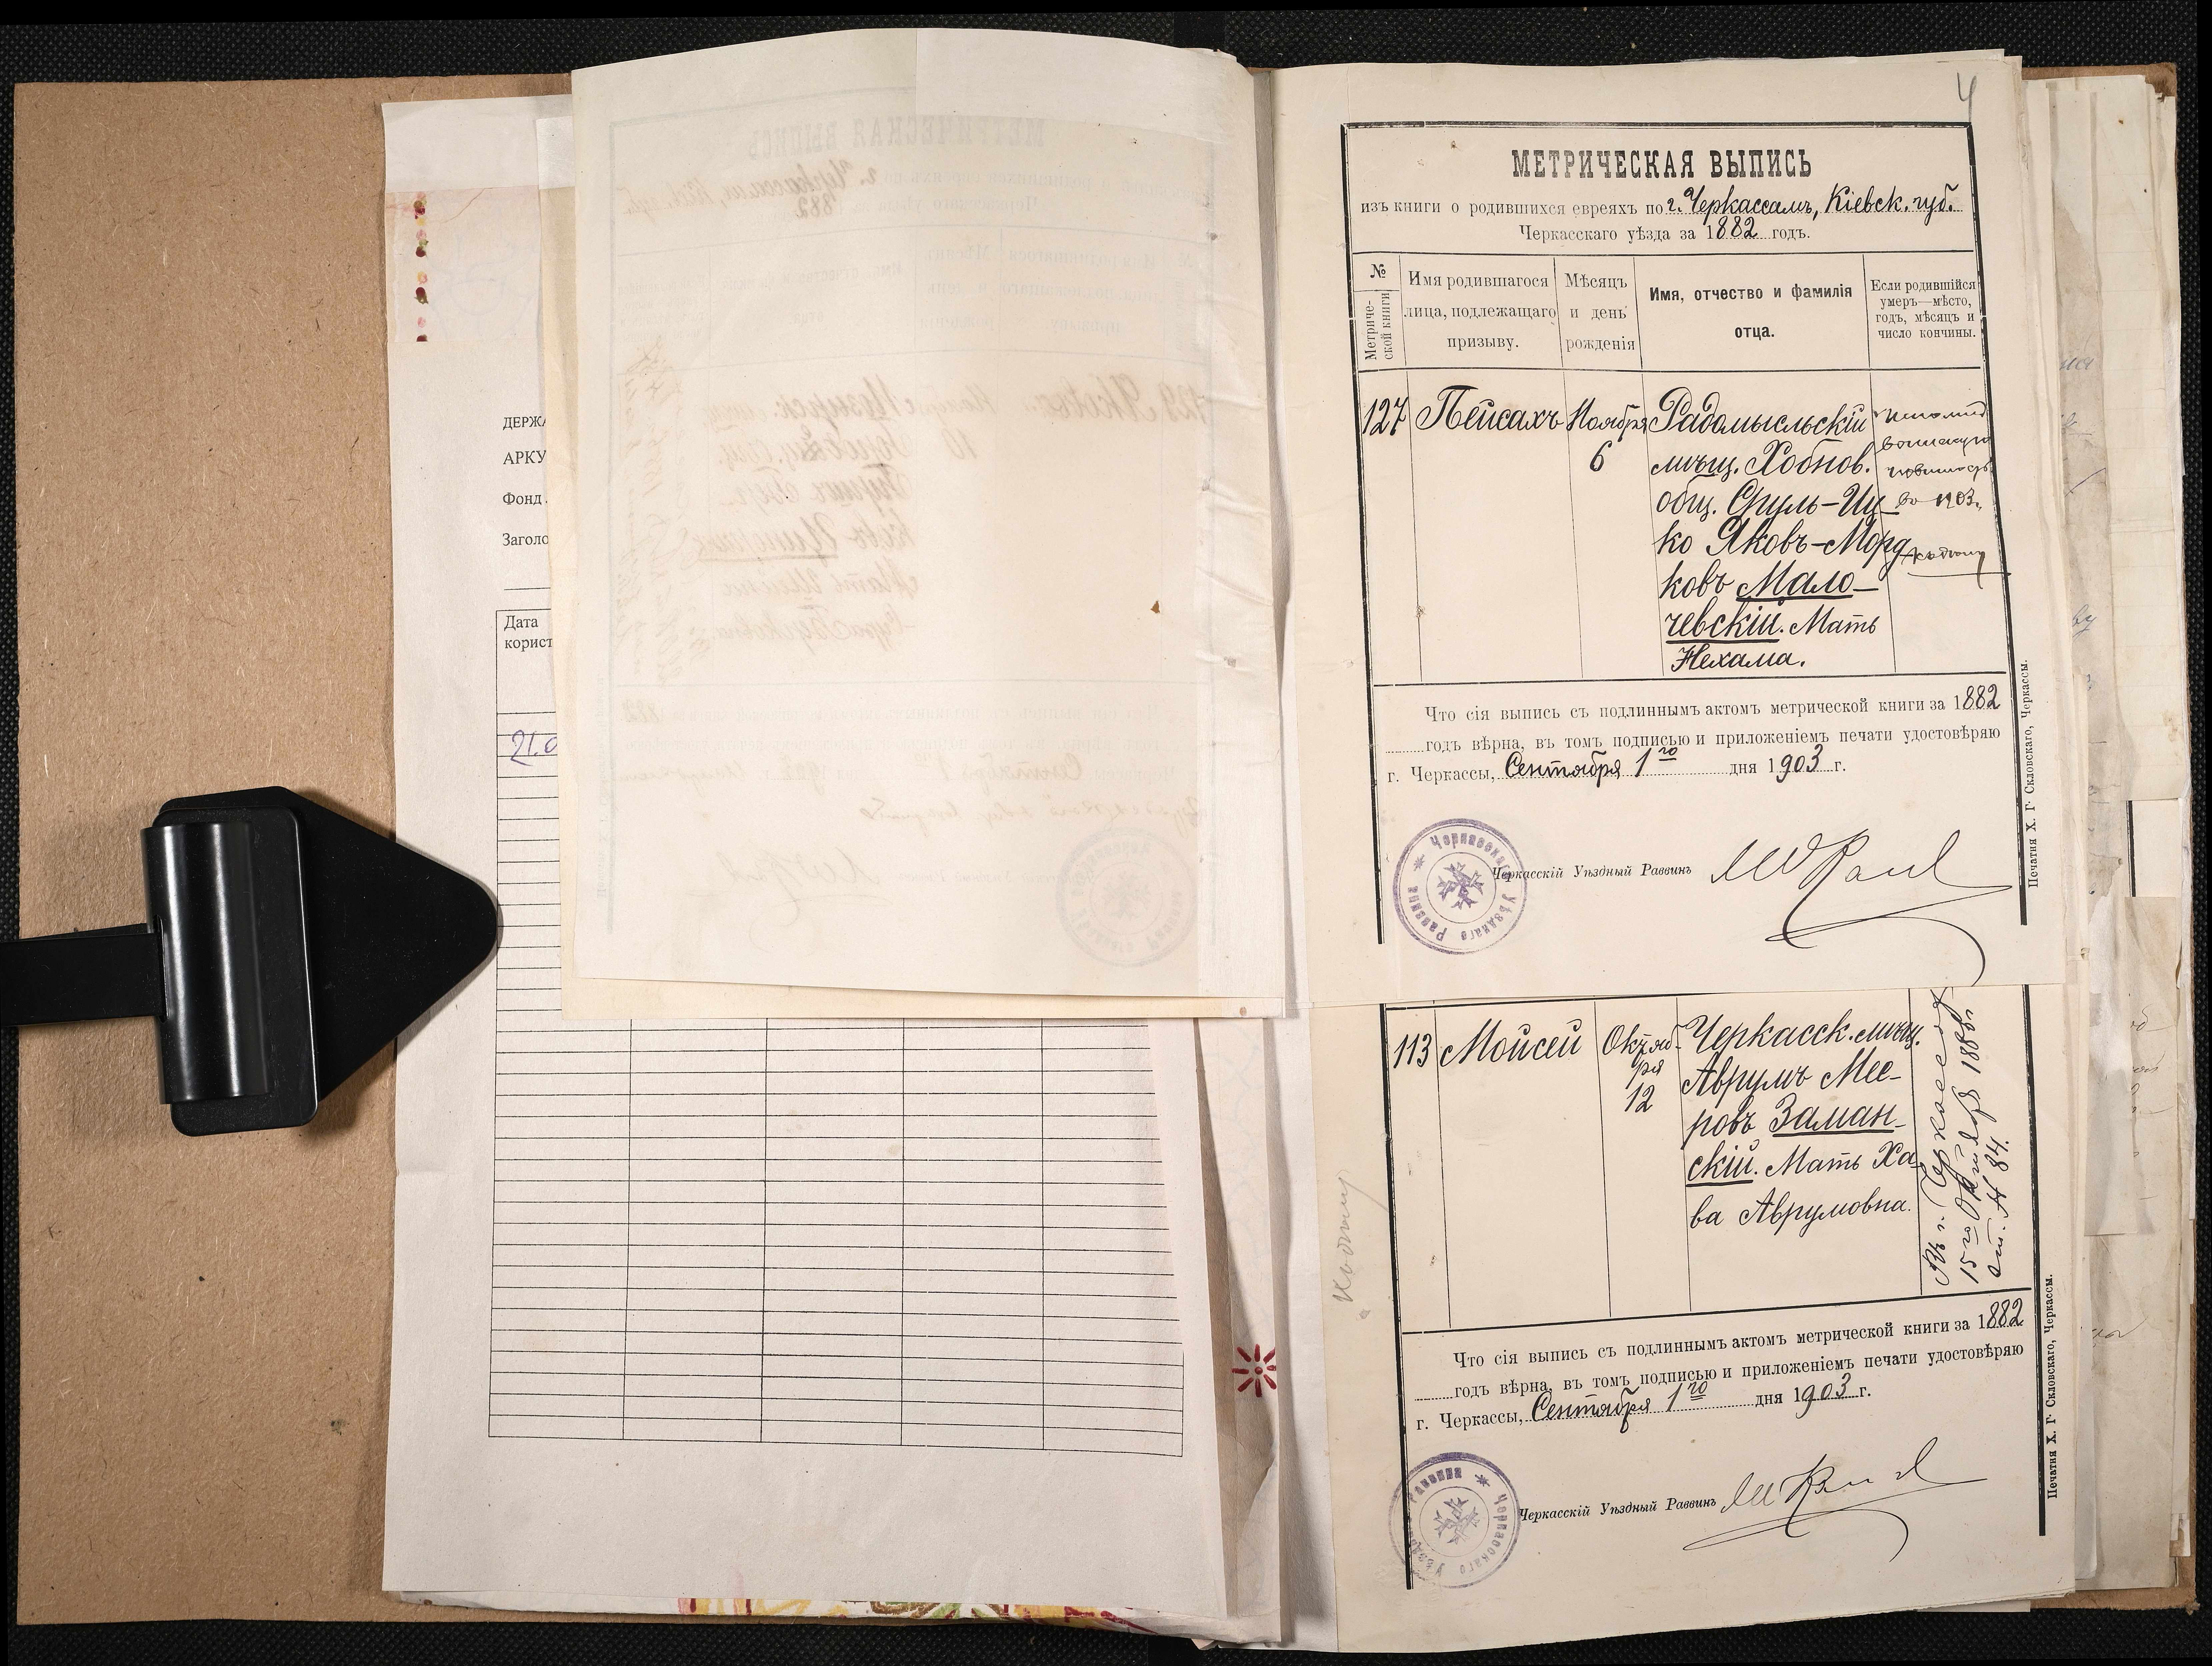 ДЕРЖА
АРКУ
Фонд
Заголо
Дата
корист
21.0
4
МЕТРИЧЕСКАЯ ВЫПИСЬ
изъ книги о родившихся евреяхъ по г. Черкассамъ, Кіевск. губ.
Черкасскаго уѣзда за 1882 годъ.
№
Метриче-
ской книги
Имя родившагося
лица, подлежащаго
призыву.
Мѣсяцъ
и день
рожденія
Имя, отчество и фамилія
отца.
Если родившійся
умеръ—мѣсто,
годъ, мѣсяцъ и
число кончины.
127
Пейсахъ
Ноября
6
Радомысльскій
мѣщ. Хобнов.
общ. Сруль-Иц-
ко Яковъ-Морд
ковъ Мало-
чевскій. Мать
Нехама.
во 1903 г.
Что сія выпись съ подлиннымъ актомъ метрической книги за 1882
годъ вѣрна, въ томъ подписью и приложеніемъ печати удостовѣряю
г. Черкассы, Сентября 1го дня 1903 г.
Черкасскаго Уѣзднаго Раввина
Черкасскій Уѣздный Раввинъ
Печатня Х. Г. Скловскаго, Черкассы.
113
Мойсей
Октяб-
ря
12
Черкасск. мѣщ.
Аврумъ Мее-
ровъ Заман-
скій. Мать Ха
ва Аврумовна.
Въ г. Черкассахъ
15го Октября 188
ст. № 84.
Что сія выпись съ подлиннымъ актомъ метрической книги за 1882
годъ вѣрна, въ томъ подписью и приложеніемъ печати удостовѣряю
г. Черкассы, Сентября 1го дня 1903 г.
Черкасскаго Уѣзднаго Раввина
Черкасскій Уѣздный Раввинъ
Печатня Х. Г. Скловскаго, Черкассы.